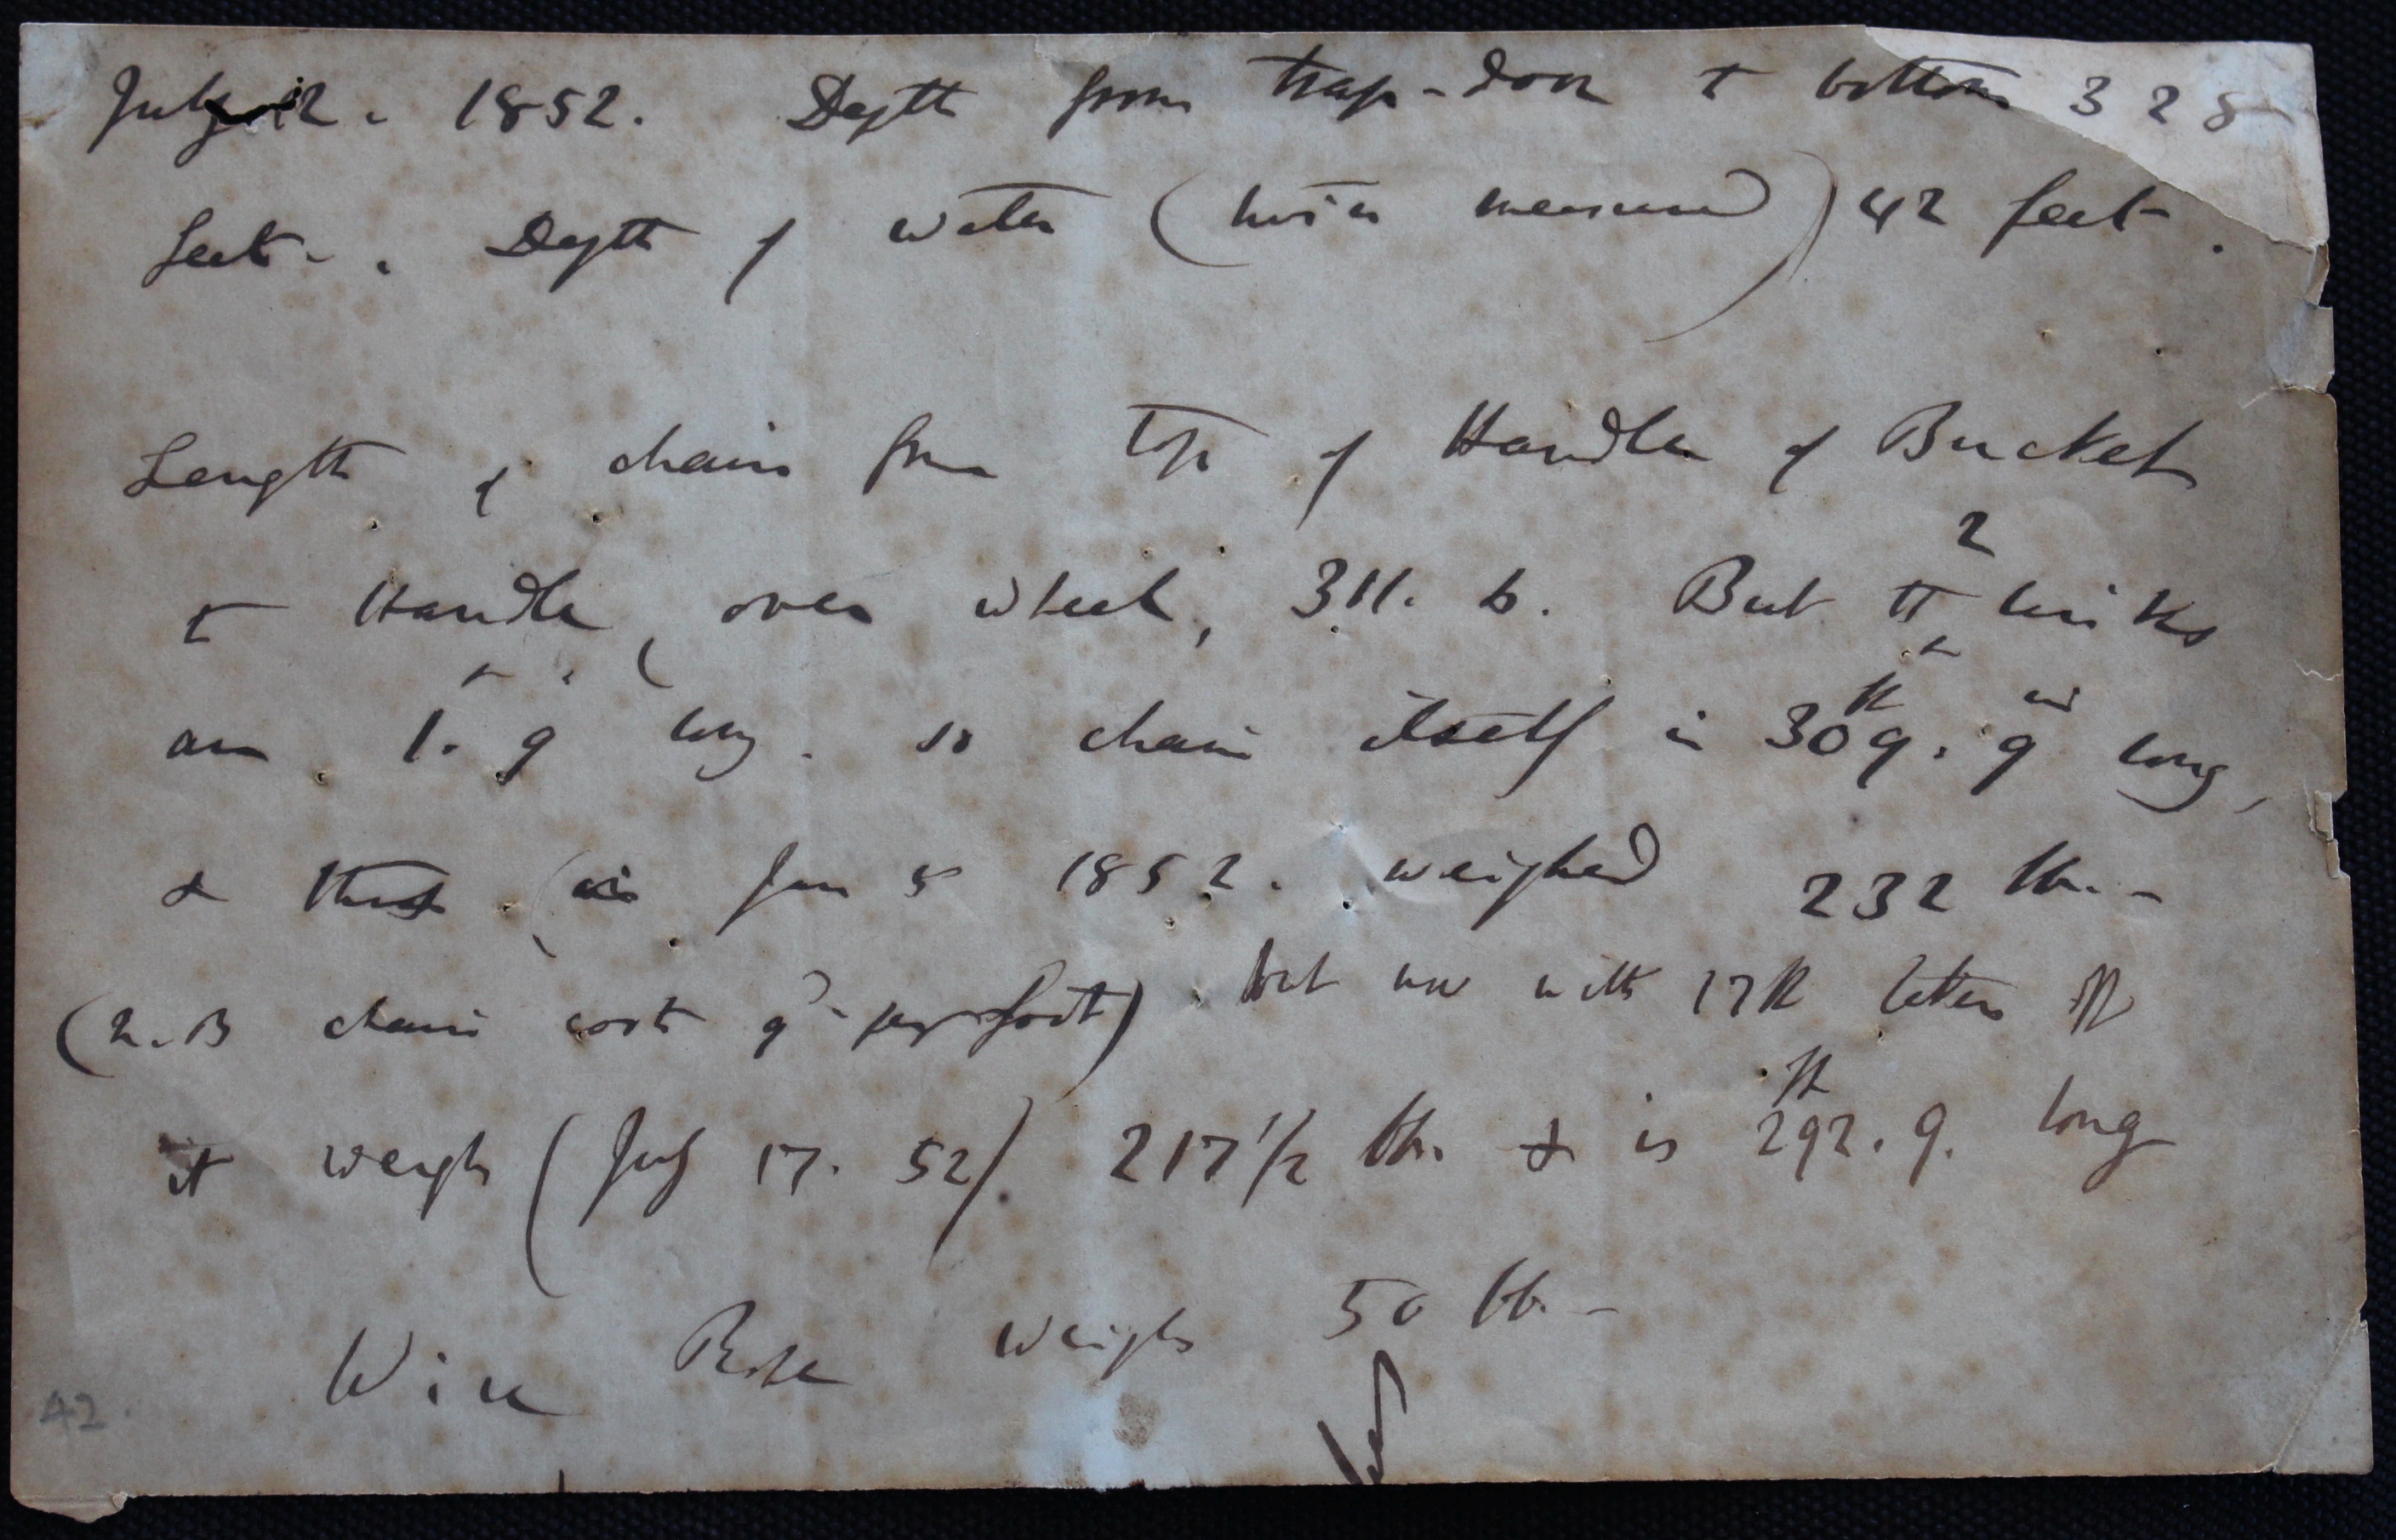 July 12. 1852. Depth from trap-door to bottom 328
feet. Depth of water (twice measured) 42 feet.
Length of chain from top of Handle of Bucket
2
to Handle, over wheel, 311. 6. But the links
ft in
are 1. 9 long. so chain itself is 309. 9 long,
& this (in Jan 5 1852. weighed 232 lb. -
(N.B chain cost 9d per foot) but now with 17 ft taken off
ft
it weighs (July 17. 52) 217 1/2 lb. & is 292. 9. long
Wire Rope weighs 50 lb. -
42.